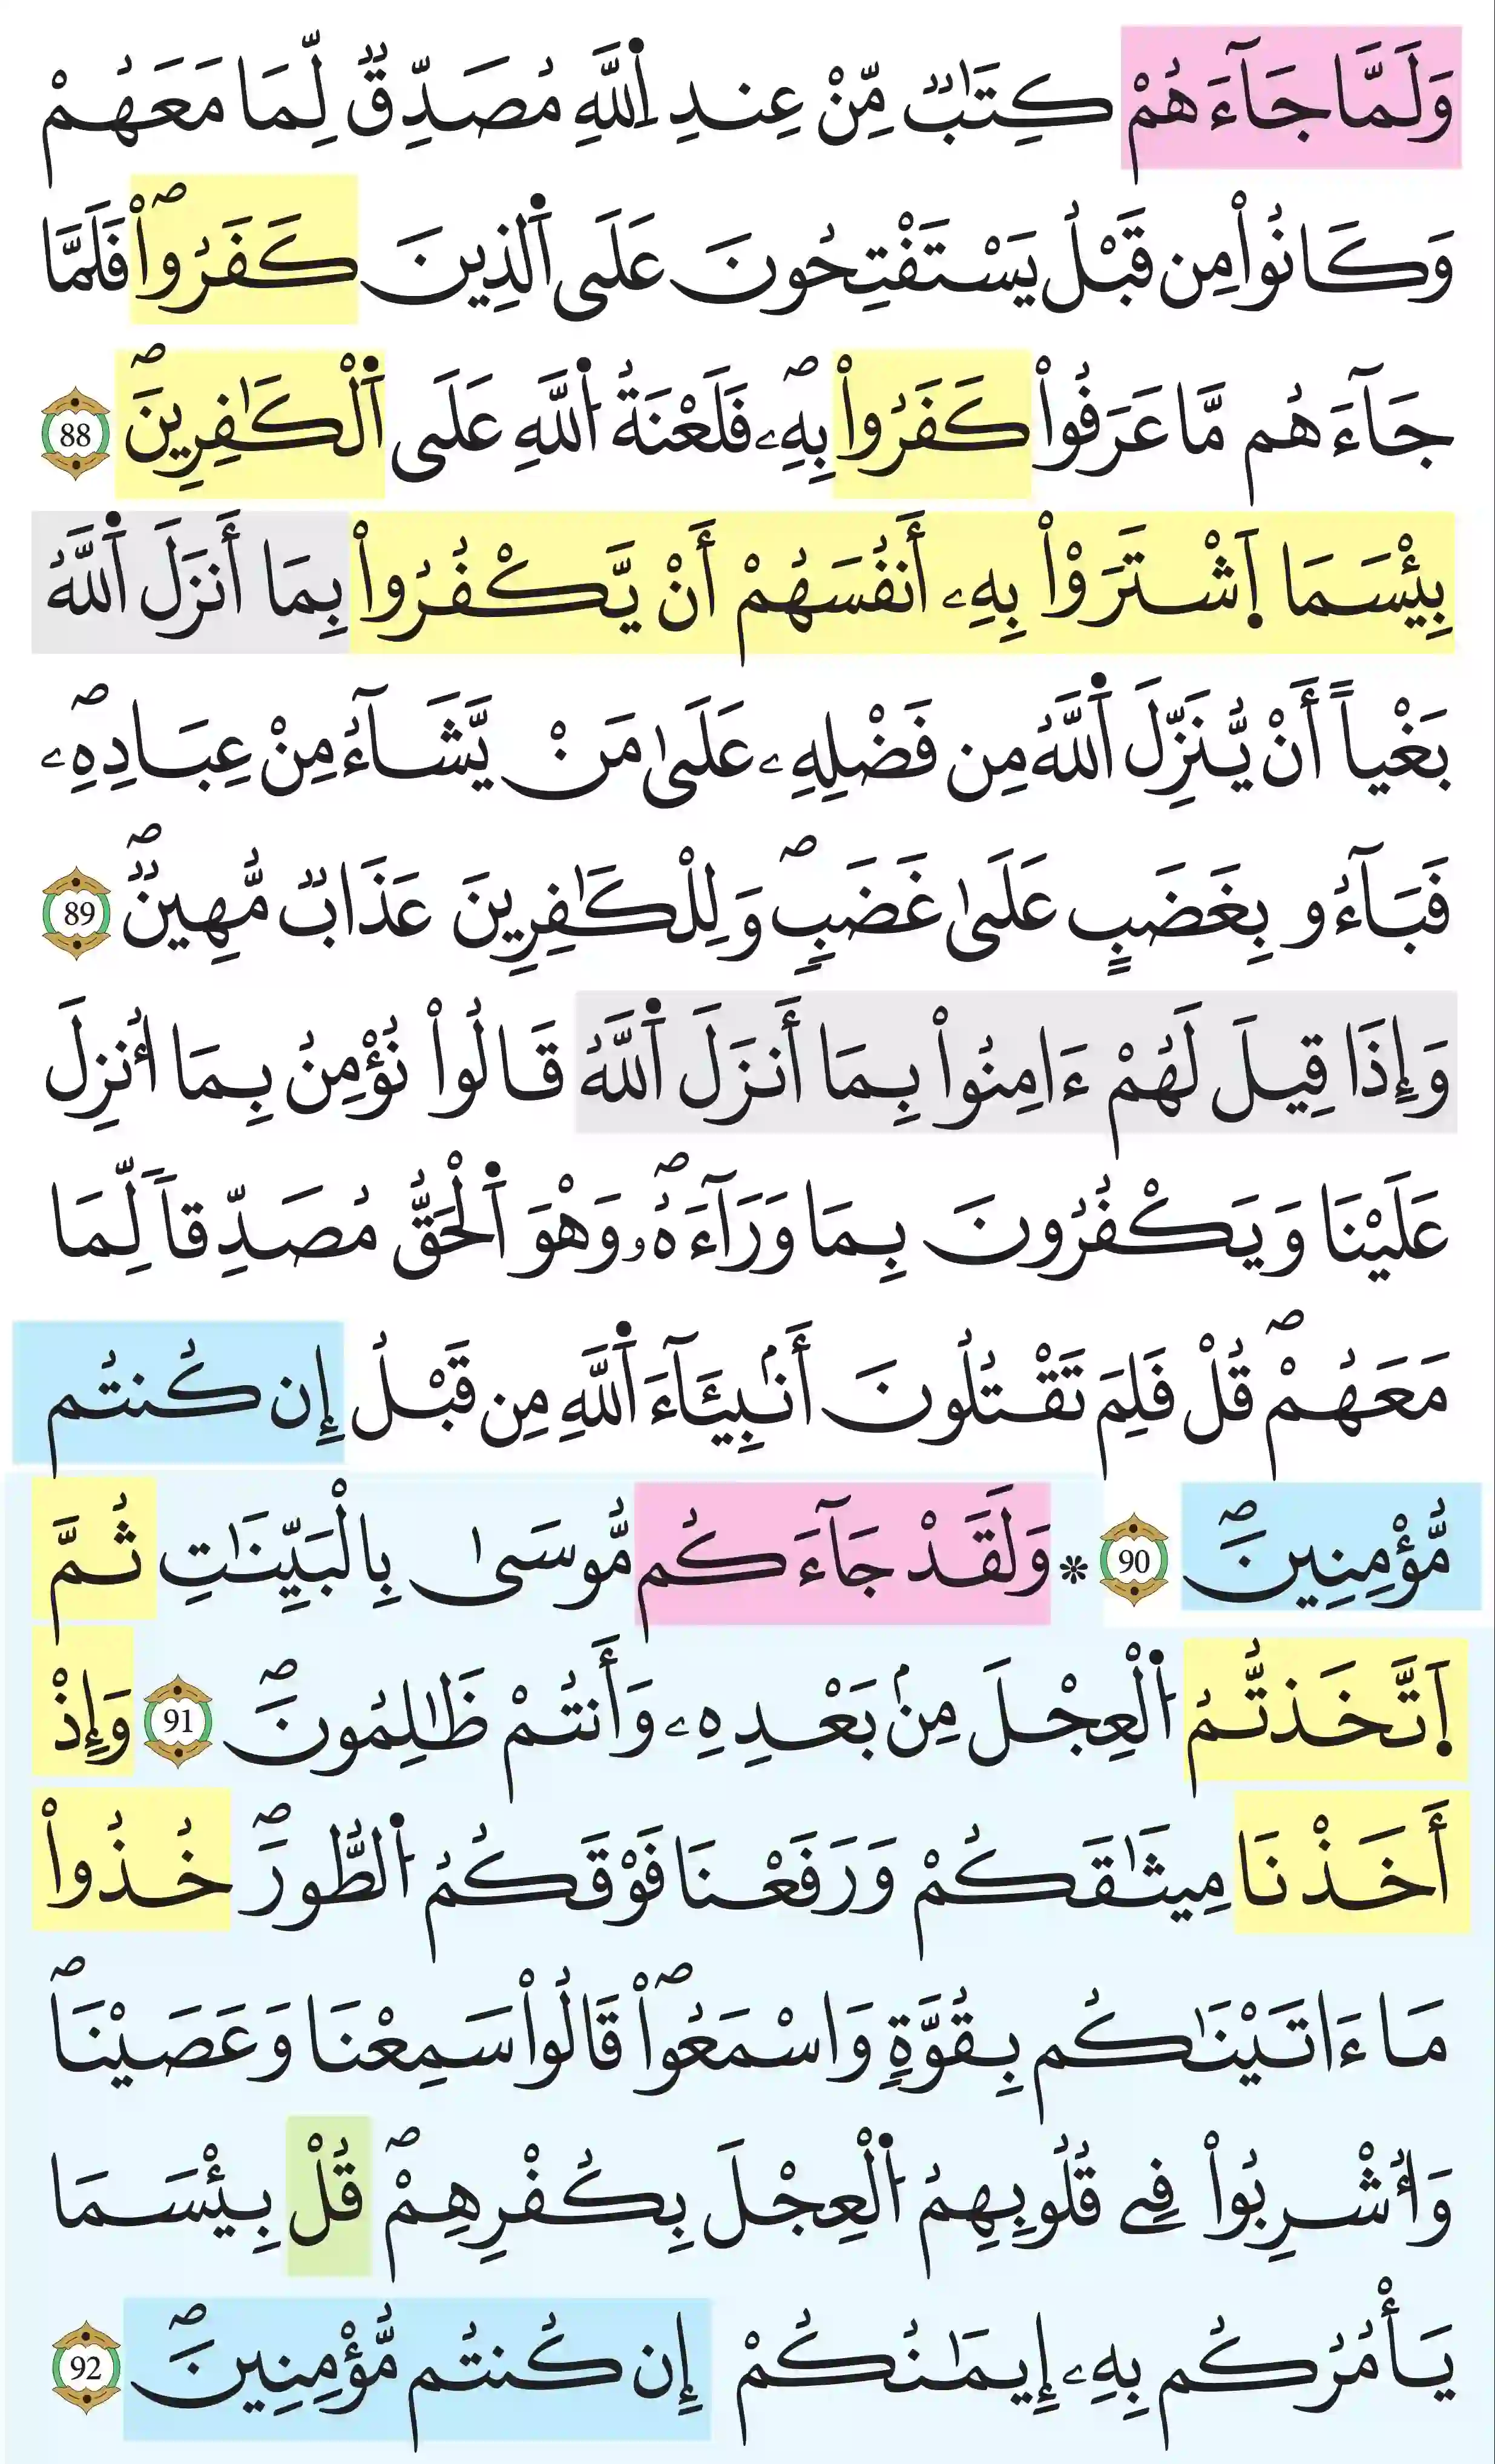 وَلَمَّا جَآءَهُمْ كِتَٰبٞ مِّنْ عِندِ اِ۬للَّهِ مُصَدِّقٞ لِّمَا مَعَهُمْ
وَكَانُواْ مِن قَبْلُ يَسْتَفْتِحُونَ عَلَى اَ۬لذِينَ كَفَرُواْۖ فَلَمَّا
جَآءَهُم مَّا عَرَفُواْ كَفَرُواْ بِهِۦۖ فَلَعْنَةُ اُ۬للَّهِ عَلَى اَ۬لْكَٰفِرِينَۖ 88
بِيسَمَا اَ۪شْتَرَوْاْ بِهِۦ أَنفُسَهُمْ أَنْ يَّكْفُرُواْ بِمَا أَنزَلَ اَ۬للَّهُ
بَغْياً أَنْ يُّنَزِّلَ اَ۬للَّهُ مِن فَضْلِهِۦ عَلَىٰ مَنْ يَّشَآءُ مِنْ عِبَادِهِۦۖ
فَبَآءُو بِغَضَبٍ عَلَىٰ غَضَبٖۖ وَلِلْكَٰفِرِينَ عَذَابٞ مُّهِينٞۖ 89
وَإِذَا قِيلَ لَهُمْ ءَامِنُواْ بِمَا أَنزَلَ اَ۬للَّهُ قَالُواْ نُؤْمِنُ بِمَا أُنزِلَ
عَلَيْنَا وَيَكْفُرُونَ بِمَا وَرَآءَهُۥۖ وَهْوَ اَ۬لْحَقُّ مُصَدِّقاٗ لِّمَا
مَعَهُمْۖ قُلْ فَلِمَ تَقْتُلُونَ أَنۢبِيَآءَ اَ۬للَّهِ مِن قَبْلُ إِن كُنتُم
مُّؤْمِنِينَۖ 90 * وَلَقَدْ جَآءَكُم مُّوسَىٰ بِالْبَيِّنَٰتِ ثُمَّ
اَ۪تَّخَذتُّمُ اُ۬لْعِجْلَ مِنۢ بَعْدِهِۦ وَأَنتُمْ ظَٰلِمُونَۖ 91 وَإِذْ
أَخَذْنَا مِيثَٰقَكُمْ وَرَفَعْنَا فَوْقَكُمُ اُ۬لطُّورَۖ خُذُواْ
مَا ءَاتَيْنَٰكُم بِقُوَّةٖ وَاسْمَعُواْۖ قَالُواْ سَمِعْنَا وَعَصَيْنَاۖ
وَأُشْرِبُواْ فِے قُلُوبِهِمُ اُ۬لْعِجْلَ بِكُفْرِهِمْۖ قُلْ بِيسَمَا
يَأْمُرُكُم بِهِۦ إِيمَٰنُكُمْ إِن كُنتُم مُّؤْمِنِينَۖ 92